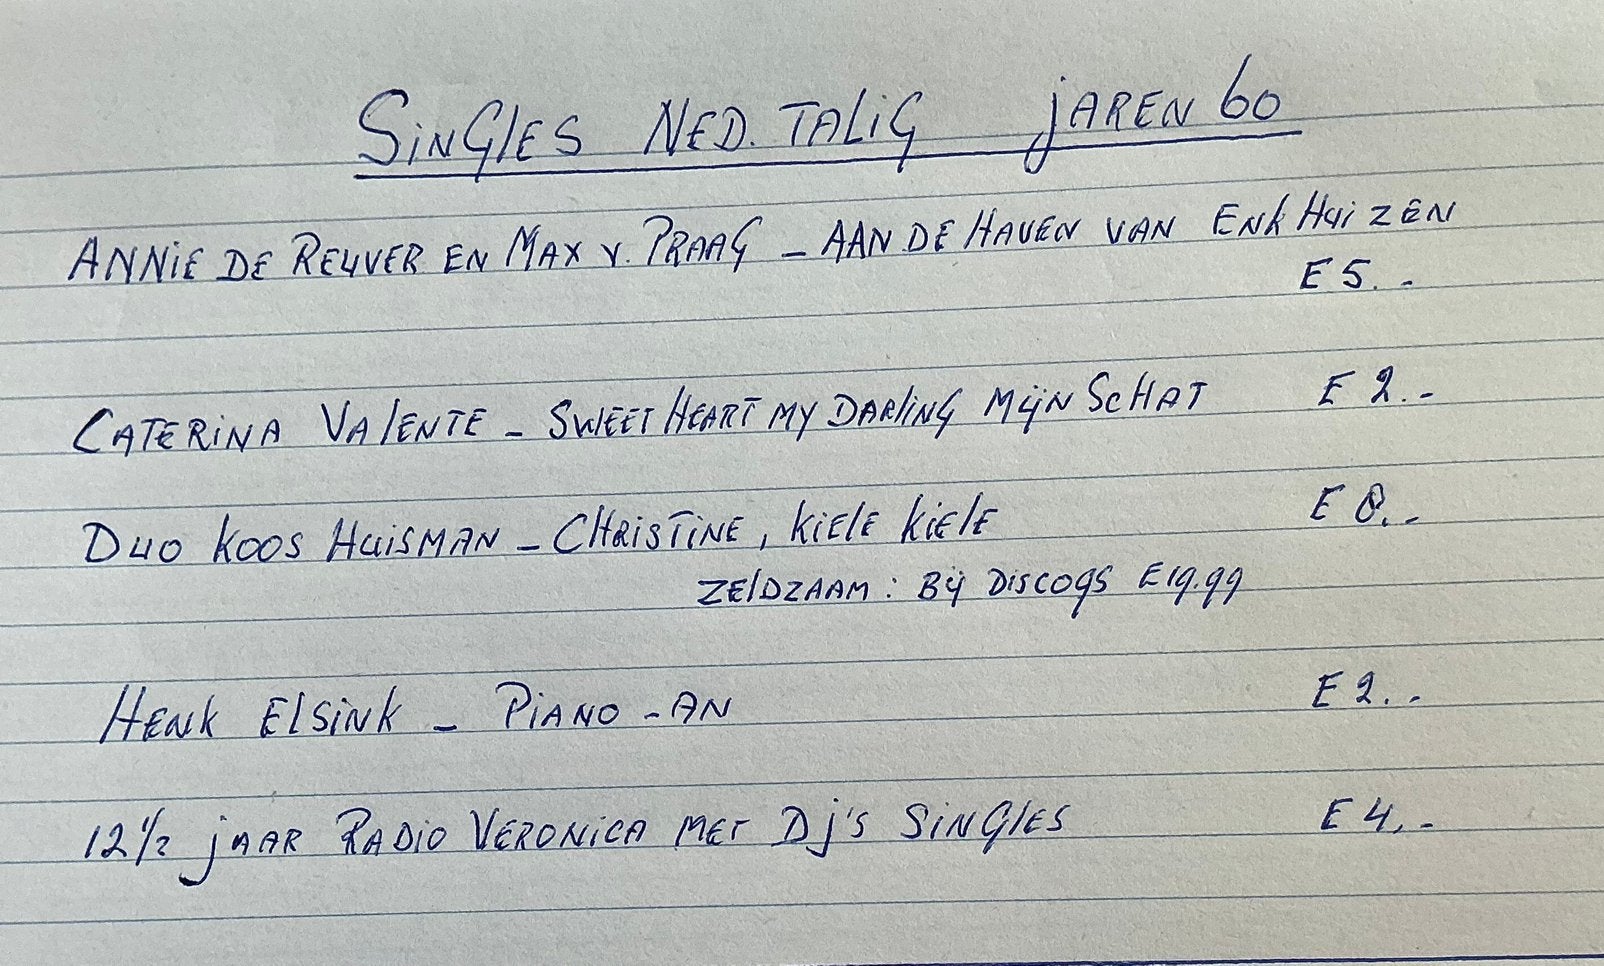 SiNGlES NED. TALiG jAREN 60
ANNiE DE REUVER EN MAX v. PRAAG - AAN DE HAVEN VAN ENKHUiZEN
E 5.-
CATERiNA VAlENTE - SWEETHEART MY DARliNG MijN SCHAT E 2.-
DUO KOOS HUiSMAN - CHRiSTiNE, KiElE KiElE E 8.-
ZElDZAAM: Bij DiSCOGS E19.99
HENK ElSiNK - PiANO-AN E 2.-
12 1/2 jAAR RADiO VERONiCA MET Dj'S SiNGlES E 4.-